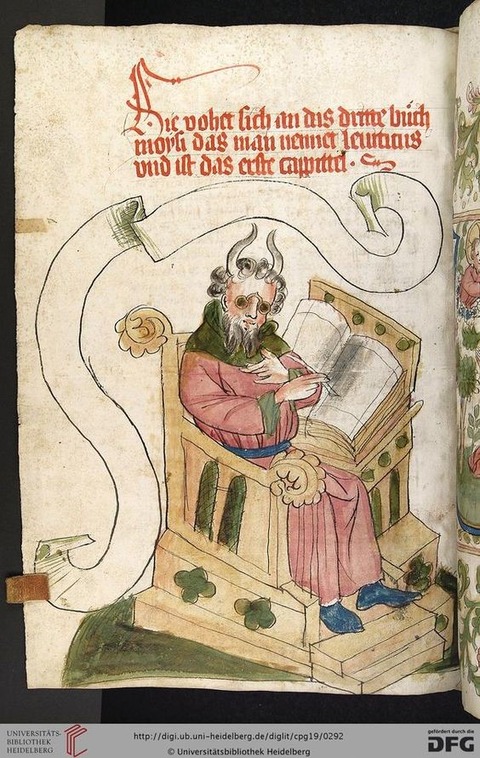 Hie vohet sich an das dritte büch
moysi das man nennet leuiticus
vnd ist das erste cappittel .
UNIVERSITÄTS-
BIBLIOTHEK
HEIDELBERG
http://digi.ub.uni-heidelberg.de/diglit/cpg19/0292
© Universitätsbibliothek Heidelberg
gefördert durch die
DFG